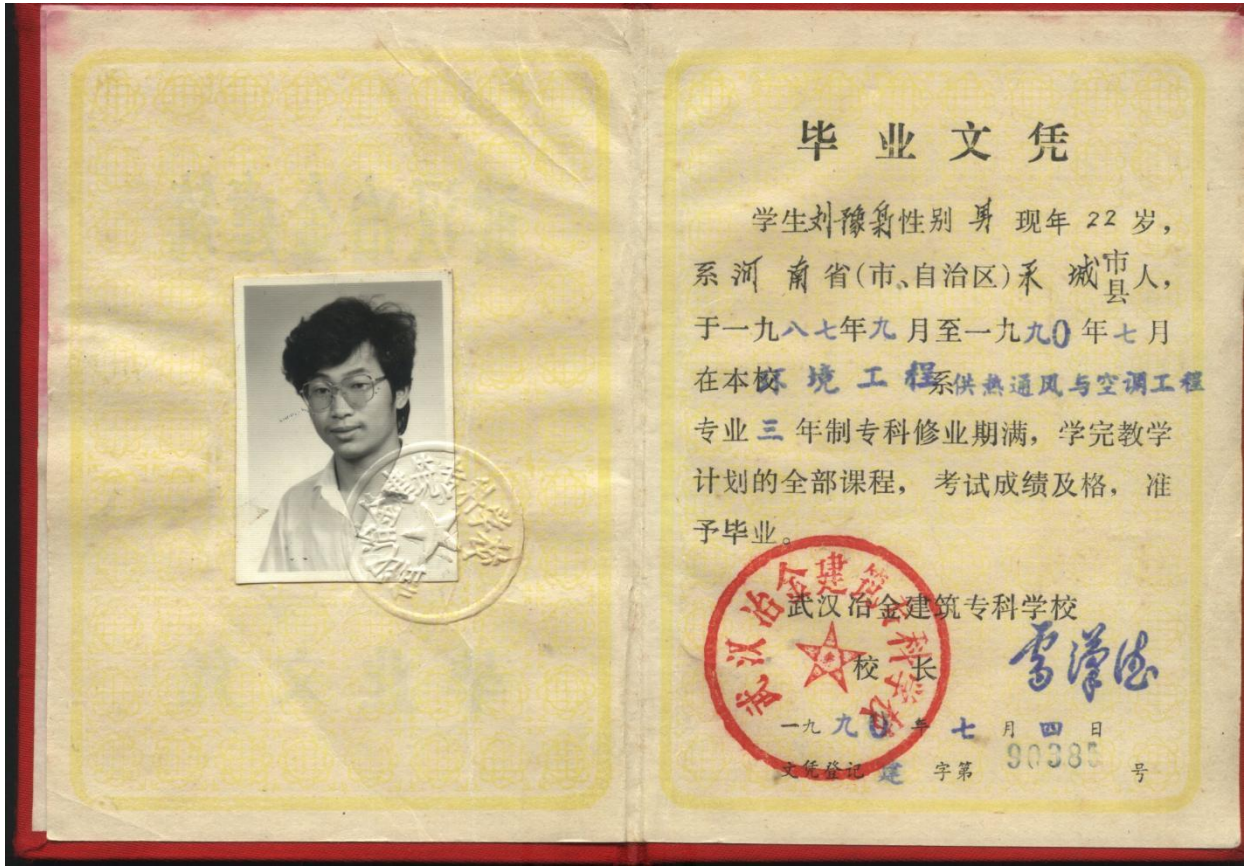 毕业文凭
学生刘豫新性别 男 现年 22 岁，
系河 南省(市、自治区) 城市县人，
于一九八七年九月至一九九0年七月
在本校环境工程系供热通风与空调工程
专业三年制专科修业期满，学完教学
计划的全部课程，考试成绩及格，准
予毕业。
武汉冶金建筑专科学校
武汉冶金建筑专科学校
校 长
一九九0年七月四日
文凭登记 建 字第 90385 号